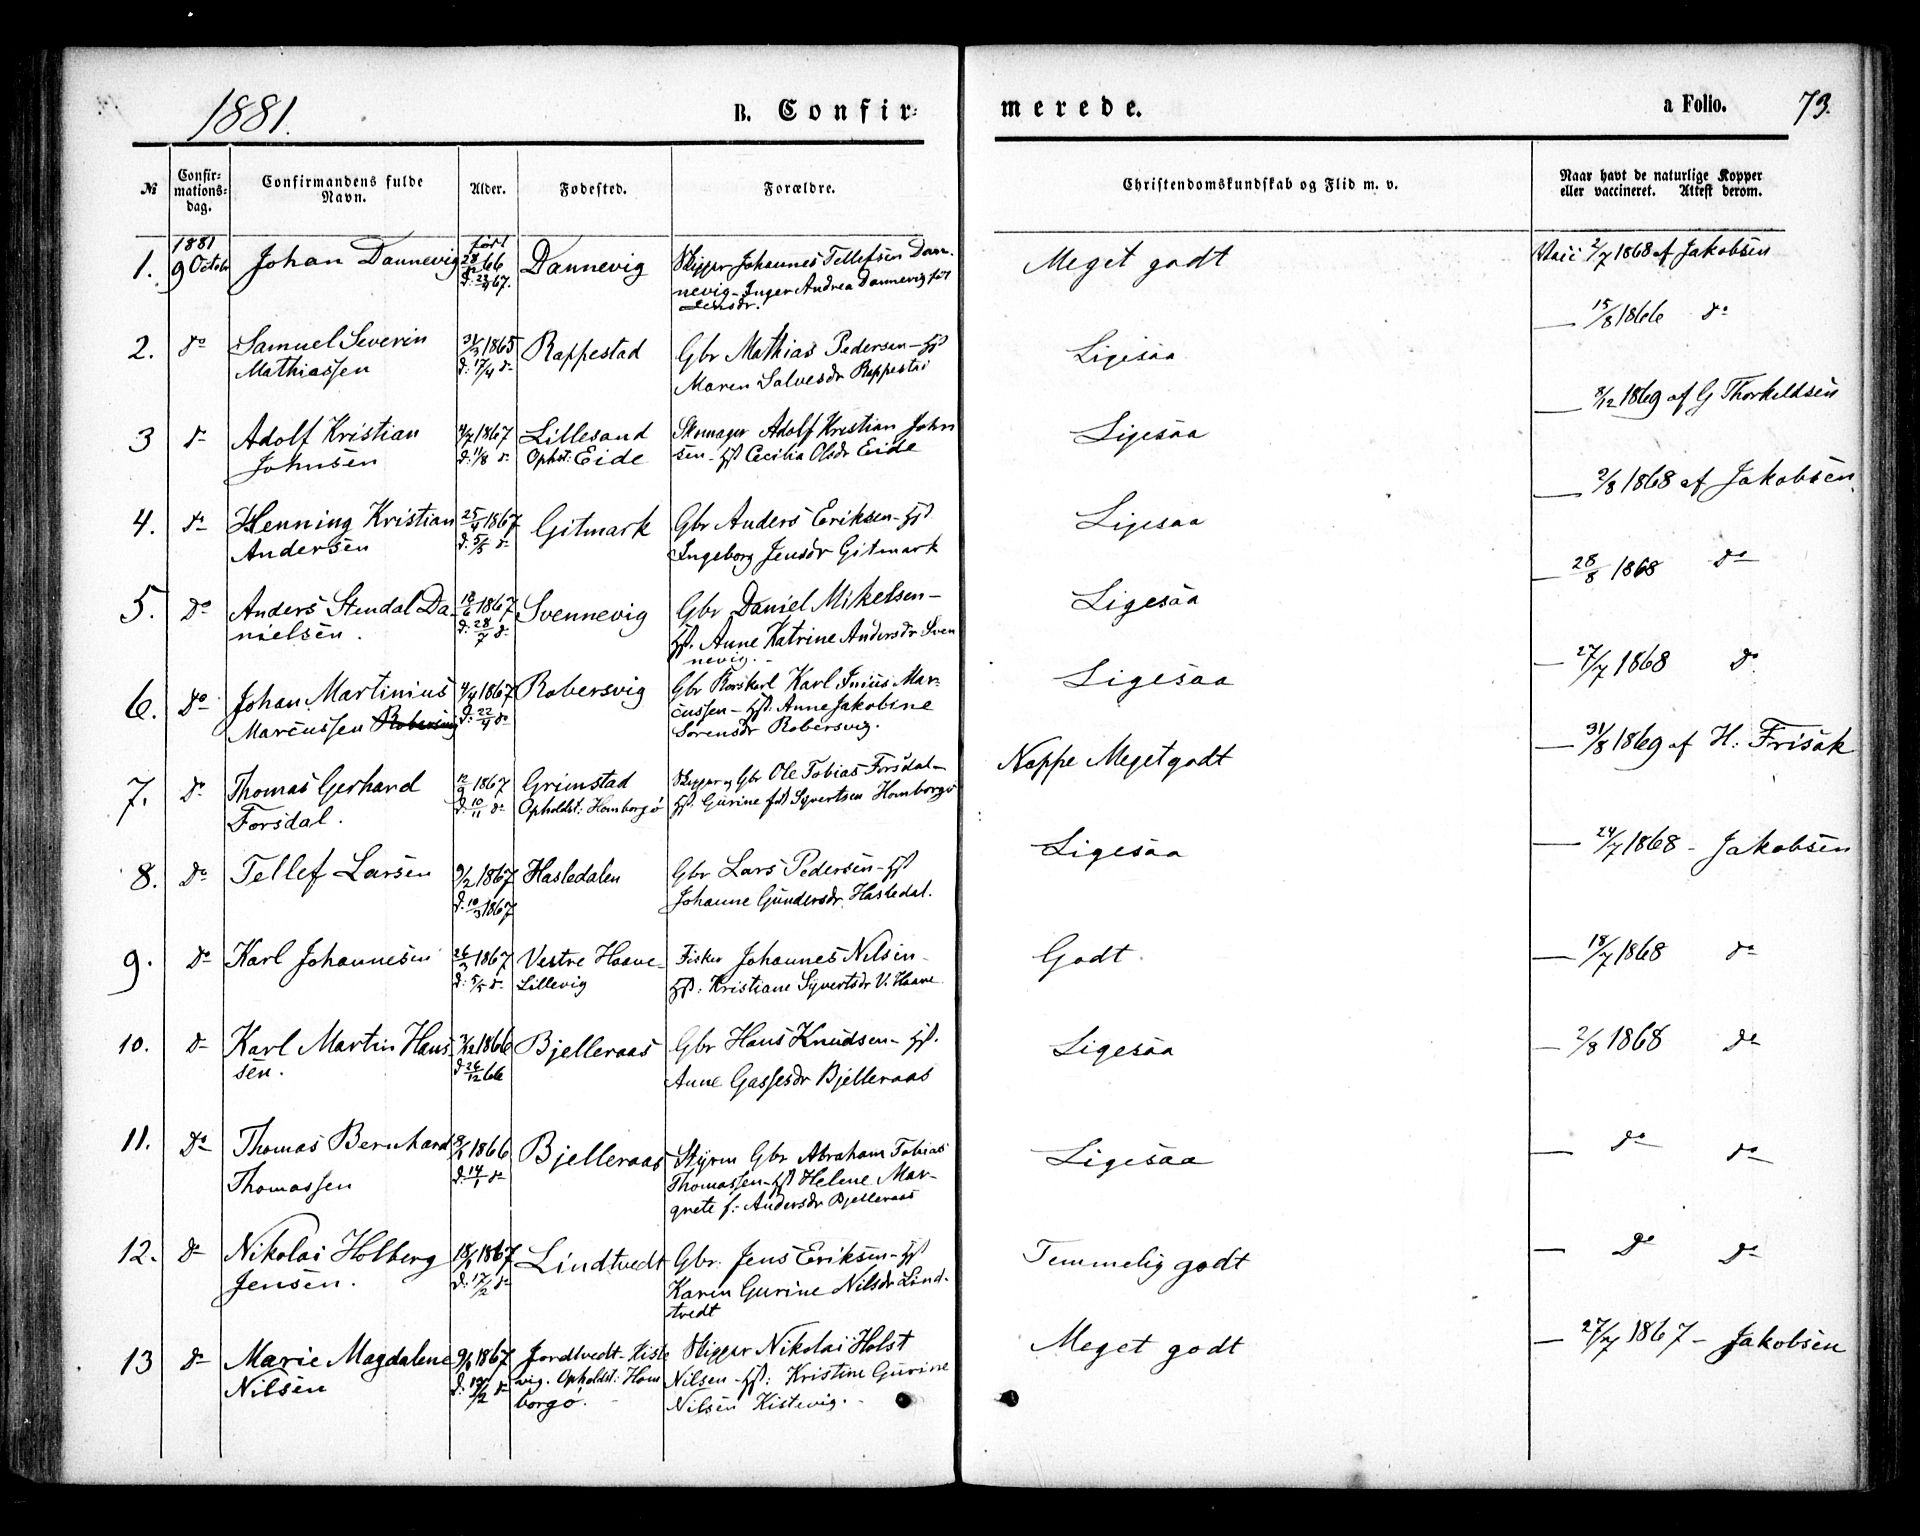 1881.
B. Confir-
merede.
a Folio.
73.
№
Confir-
mations-
dag.
Confirmandens fulde
Navn.
Alder.
Fødested.
Forældre.
Christendomskundskab og Flid m. v.
Naar havt de naturlige Kopper
eller vaccineret. Attest derom.
1.
1881
9 Octobr
Johan Dannevig
født
28/12 66
Dannevig
Skipper Johannes Tellefsen Dan-
nevig - Inger Andrea Dannevig fød
Jensdr.
Meget godt
Vaic 2/7 1868 af Jakobsen
2.
do
Samuel Severin
Mathiassen
31/3 1865
d: 17/4 do
Rappestad
Gbr Mathias Pedersen - Hst
Maren Salvesdr Rappestad
Ligesaa
— 15/8 1866 do
3
do
Adolf Kristian
Johnsen
1867
d: 11/8 do
Lillesand
Ophst: Eide
Adolf Kristian John
sen - Hst Cecilia Olsdr Eide
Ligesaa
— 8/12 1869 af G Thorkeldsen
4.
do
Henning Kristian
Andersen
25/4 1867
d: 5/5 do
Gitmark
Gbr Anders Eriksen - Hst
Ingeborg Jensdr Gitmark
Ligesaa
— 2/8 1868 af Jakobsen
5.
Do
Anders Stendal Da-
nielsen.
18/6 1867
d: 28/7 do
Svennevig
Gbr Daniel Mikelsen -
Hst. Anne Katrine Andersdr Sven
nevig.
Ligesaa
— 28/8 1868 do
6.
Do
Johan Martinius
Marcussen
1867
d: 22/4 do
Robersvig
Gbr Karl Inius Mar-
cussen - Hst. Anne Jakobine
Sørensdr Robersvig.
Ligesaa
— 27/7 1868 do
7.
Do
Thomas Gerhard
Forsdal.
12/9 1867
d: 10/11 do
Grimstad
Opholdst: Homborgø
Skipper og Gbr Ole Tobias Forsdal -
Hst. Gurine fød Syvertsen Homborgø
Noppe Meget godt
— 31/8 1869 af H: Frisak
8.
Do
Tellef Larsen
9/2 1867
d: 10/3 1867
Hasledalen
Gbr Lars Pedersen - Hst
Johanne Gundersdr Hasledal.
Ligesaa
— 24/7 1868 - Jakobsen
9.
Do
Karl Johannesen
26/3 1867
d: 5/5 do
Vestre Haave-
Lillevig
Fisker Johannes Nilsen -
Hst: Kristiane Syvertsdr V. Haave
Godt.
— 18/7 1868 do
10.
do
Karl Martin Hans
sen.
1866
d 26/12 66
Bjelleraas
Gbr Hans Knudsen - Hst.
Anne Gassesdr Bjelleraas
Ligesaa
— 2/8 1868 do
11.
Do
Thomas Bernhard
Thomassen
1866
d: 14/1 do
Bjelleraas
Styrm Gbr Abraham Tobias
Thomassen - Hst Helene Mar-
grete f: Andersdr Bjelleraas
Ligesaa
— do do
12.
do
Nikolai Holberg
Jensen.
18/1 1867
d: 17/2 do
Lindtvedt
Gbr. Jens Eriksen - Hst
Karen Gurine Nilsdr Lind-
tvedt
Temmelig godt
— Do do
13
do
Marie Magdalene
Nilsen
9/1 1867
d: 10/2 do
Jordtvedt - Kiste
vig. Opholdst: Hom
borgø.
Skipper Nikolai Holst
Nilsen - Hst: Kristine Gurine
Nilsen Kistevig.
Meget godt
— 27/7 1867 - Jakobsen